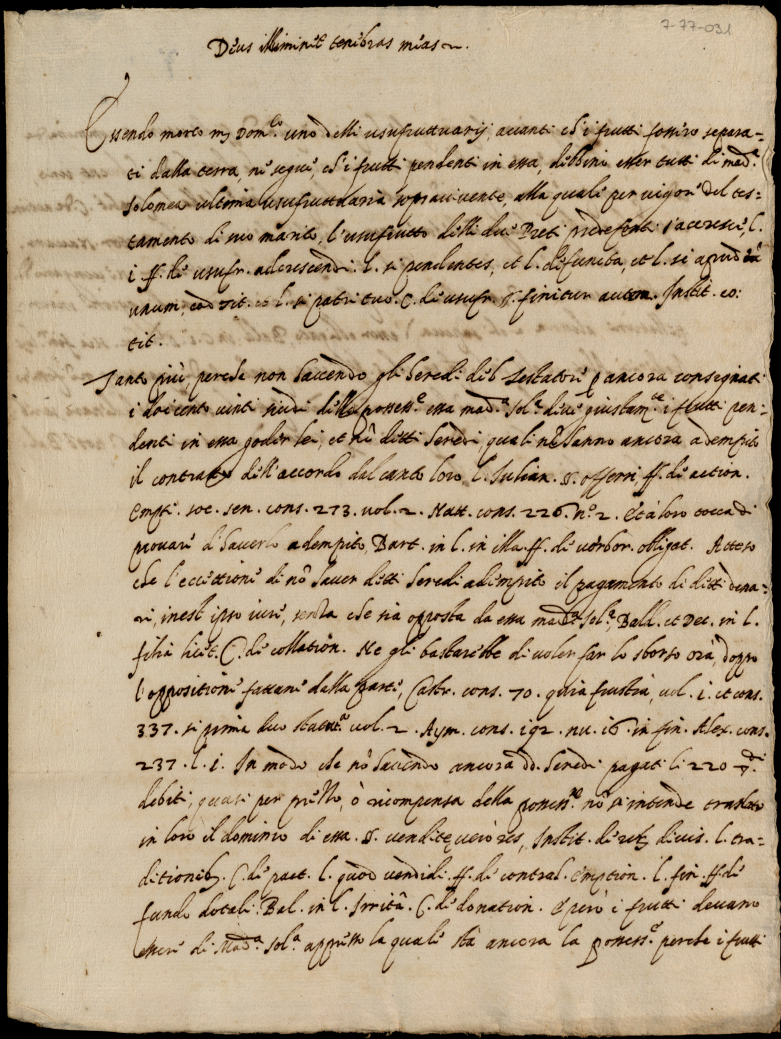 7-77-031
Deus illuminet tenebras meas
Essendo morto m. Dom.co uno delli usufruttuarij, avanti ch'i frutti fossero separa-
ti dalla terra, ne segue, ch'i frutti pendenti in essa, debbino esser tutti di mad.a
Solomea ultima usufruttuaria sopravivente, alla quale per vigore del tes-
tamento di suo marito, l'usufrutto delli due Preti predefonti s'accresce, l.
i. ff. de usufr. adcrescendi. l. si pendentes, et l. defuncta, et l. si apud
unum, eod. tit. et l. si patri tuo. C. de usufr. §. finitur autem. Instit. eo:
tit.
Tanto più perche non havendo gli heredi del Testatore ancora consegnati
i doicento vinti scudi della possess.e essa mad.a Sol.a deve giustam.te i frutti pen-
denti in essa goder lei, et nõ detti heredi quali nõ hanno ancora adempito
il contratto dell'accordo dal canto loro l. Iulian. §. offerri, ff. de action.
Empti. soc. sen. cons. 273. vol. 2. Natt. cons. 226. n.o 2. Et à loro tocca di
provare d'haverlo adempito, Bart. in l. in illa. ff. de verbor. obligat. Atteso
che l'eccettione di nõ haver detti heredi adempito il pagamento di detti dena-
ri, inest ipso iure, senza che sia opposta da essa mad.a Sol.a Bald. et Dec. in l.
filia licet. C. de collation. Ne gli bastarebbe di voler far lo sborso ora, doppo
l'oppositione fattane dalla parte, Castr. cons. 70. quia frustra, vol. i. et cons.
337. si prima duo vol. 2. Aym. cons. 192. nu. 16. in fin. Alex. cons.
237. l. i. In modo che nõ havendo ancora dd. heredi pagati li 220
debiti, quasi per prezzo, ò ricompensa della possess.e nõ s'intende traslato
in loro il dominio di essa. §. venditę vero res, Instit. de rer. divis. l. tra-
ditionib. C. de pact. l. quod vendidi. ff. de contrah. Emption. l. fin. ff. de
fundo dotali. Bal. in l. Irritã. C. de donation. E però i frutti devano
essere di Mad.a Sol.a appresso la quale stà ancora la possess.e perche i frutti